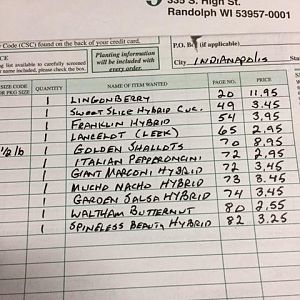 335 S. High St.
Randolph WI 53957-0001
Code (CSC) found on the back of your credit card.
Planting information will be included with every order.
P.O. Box (if applicable)
City INDIANAPOLIS
QUANTITY NAME OF ITEM WANTED PAGE NO. PRICE
1 LINGONBERRY 20 11.95
1 SWEET SLICE HYBRID CUC. 49 3.45
1 FRANKLIN HYBRID 54 3.95
1 LANCELOT (LEEK) 65 2.95
1/2 lb 1 GOLDEN SHALLOTS 70 8.95
1 ITALIAN PEPPERONCINI 72 2.95
1 GIANT MARCONI HYBRID 72 3.45
1 MUCHO NACHO HYBRID 73 3.45
1 GARDEN SALSA HYBRID 74 3.45
1 WALTHAM BUTTERNUT 80 2.55
1 SPINELESS BEAUTY HYBRID 82 3.25